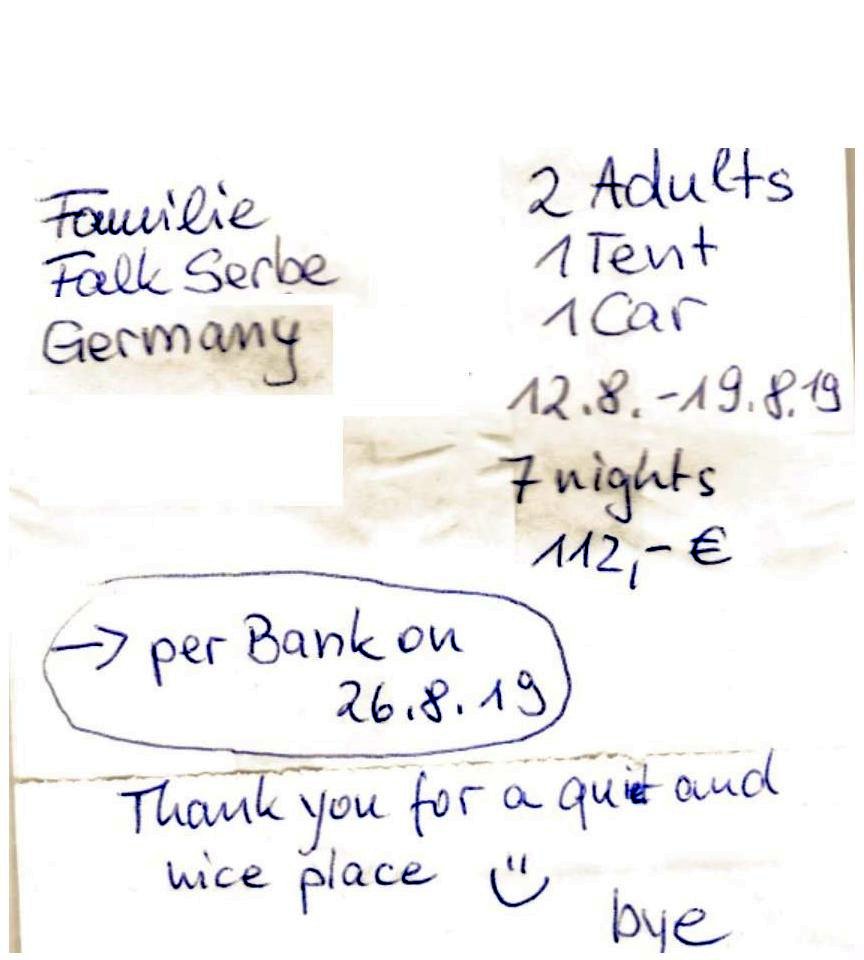 Familie
Falk Serbe
Germany
2 Adults
1 Tent
1 Car
12.8.-19.8.19
7 nights
112,- €
→ per Bank on
26.8.19
Thank you for a quiet and
nice place ü
bye